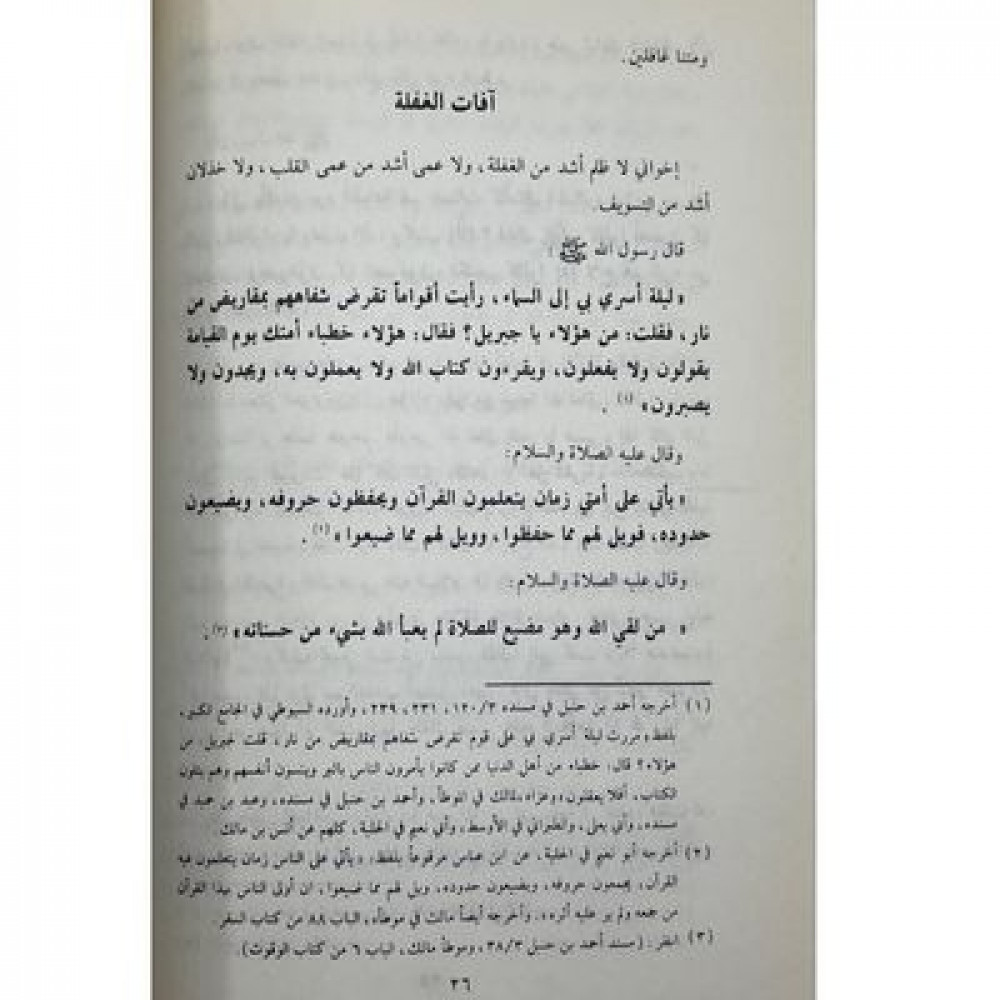 ومتنا غافلين.
آفات الغفلة
إخواني لا ظلم أشد من الغفلة، ولا عمى أشد من عمى القلب، ولا خذلان
أشد من التسويف.
قال رسول الله ﷺ :
« ليلة أسري بي إلى السماء، رأيت أقواماً تقرض شفاههم بمقاريض من
نار، فقلت: من هؤلاء يا جبريل؟ فقال: هؤلاء خطباء أمتك يوم القيامة
يقولون ولا يفعلون، ويقرءون كتاب الله ولا يعملون به، ويجدون ولا
يصبرون » (١) .
وقال عليه الصلاة والسلام:
« يأتي على أمتي زمان يتعلمون القرآن ويحفظون حروفه، ويضيعون
حدوده، فويل لهم مما حفظوا، وويل لهم مما ضيعوا » (٢) .
وقال عليه الصلاة والسلام:
« من لقي الله وهو مضيع للصلاة لم يعبأ الله بشيء من حسناته » (٣) .
(١) أخرجه أحمد بن حنبل في مسنده ١٢٠/٣، ٢٣١، ٢٣٩، وأورده السيوطي في الجامع الكبير،
بلفظ « مررت ليلة أسري بي على قوم تقرض شفاههم بمقاريض من نار، قلت لجبريل: من
هؤلاء؟ قال: خطباء من أهل الدنيا ممن كانوا يأمرون الناس بالبر وينسون أنفسهم وهم يتلون
الكتاب، أفلا يعقلون » وعزاه لمالك في الموطأ، وأحمد بن حنبل في مسنده، وعبد بن حميد في
مسنده، وأبي يعلى، والطبراني في الأوسط، وأبي نعيم في الحلية، كلهم عن أنس بن مالك.
(٢) أخرجه أبو نعيم في الحلية، عن ابن عباس مرفوعاً بلفظ: « يأتي على الناس زمان يتعلمون فيه
القرآن، يجمعون حروفه، ويضيعون حدوده، ويل لهم مما ضيعوا، ان أولى الناس بهذا القرآن
من جمعه ولم ير عليه أثره ». وأخرجه أيضاً مالك في موطأه، الباب ٨٨ من كتاب السفر.
(٣) انظر: (مسند أحمد بن حنبل ٣٨/٣، وموطأ مالك، الباب ٦ من كتاب الوقوت).
٣٦